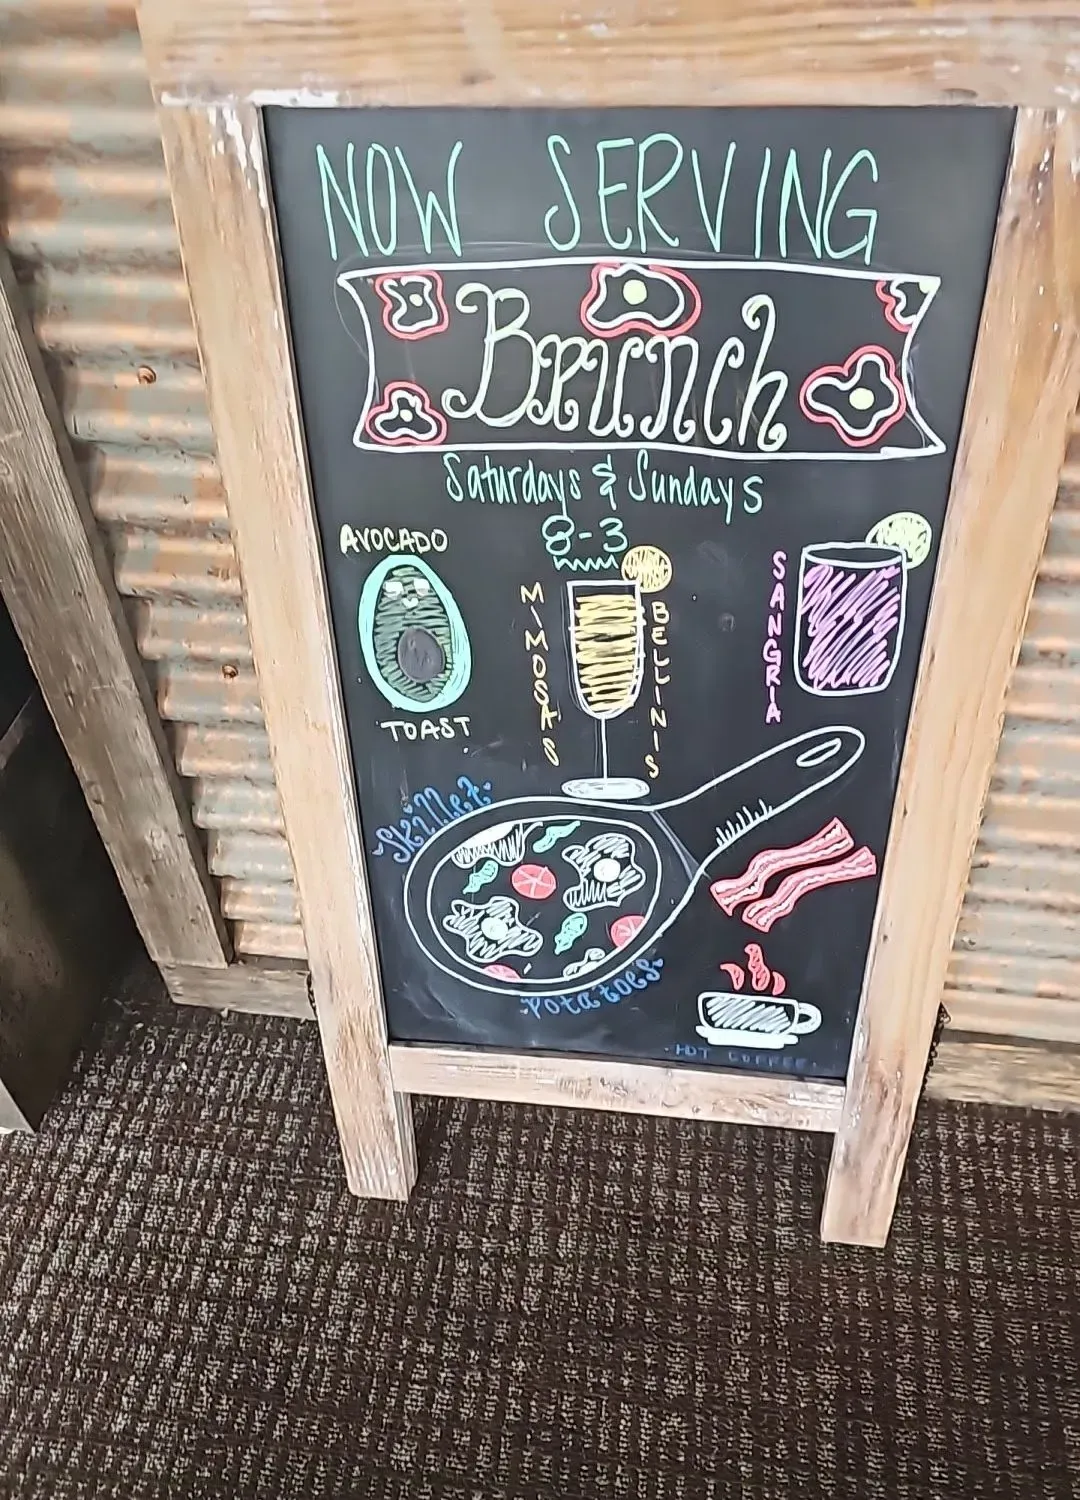 NOW SERVING
Brunch
Saturdays & Sundays
8-3
AVOCADO
TOAST
MIMOSAS
BELLINIS
SANGRIA
Skillet
Potatoes
HOT COFFEE